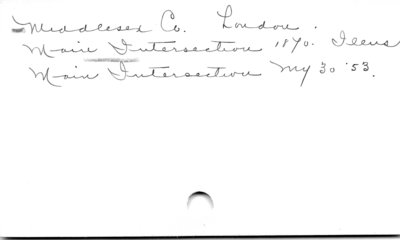 Middlesex Co. London.
Main Intersection 1870. Illus
Main Intersection My 30 '53.